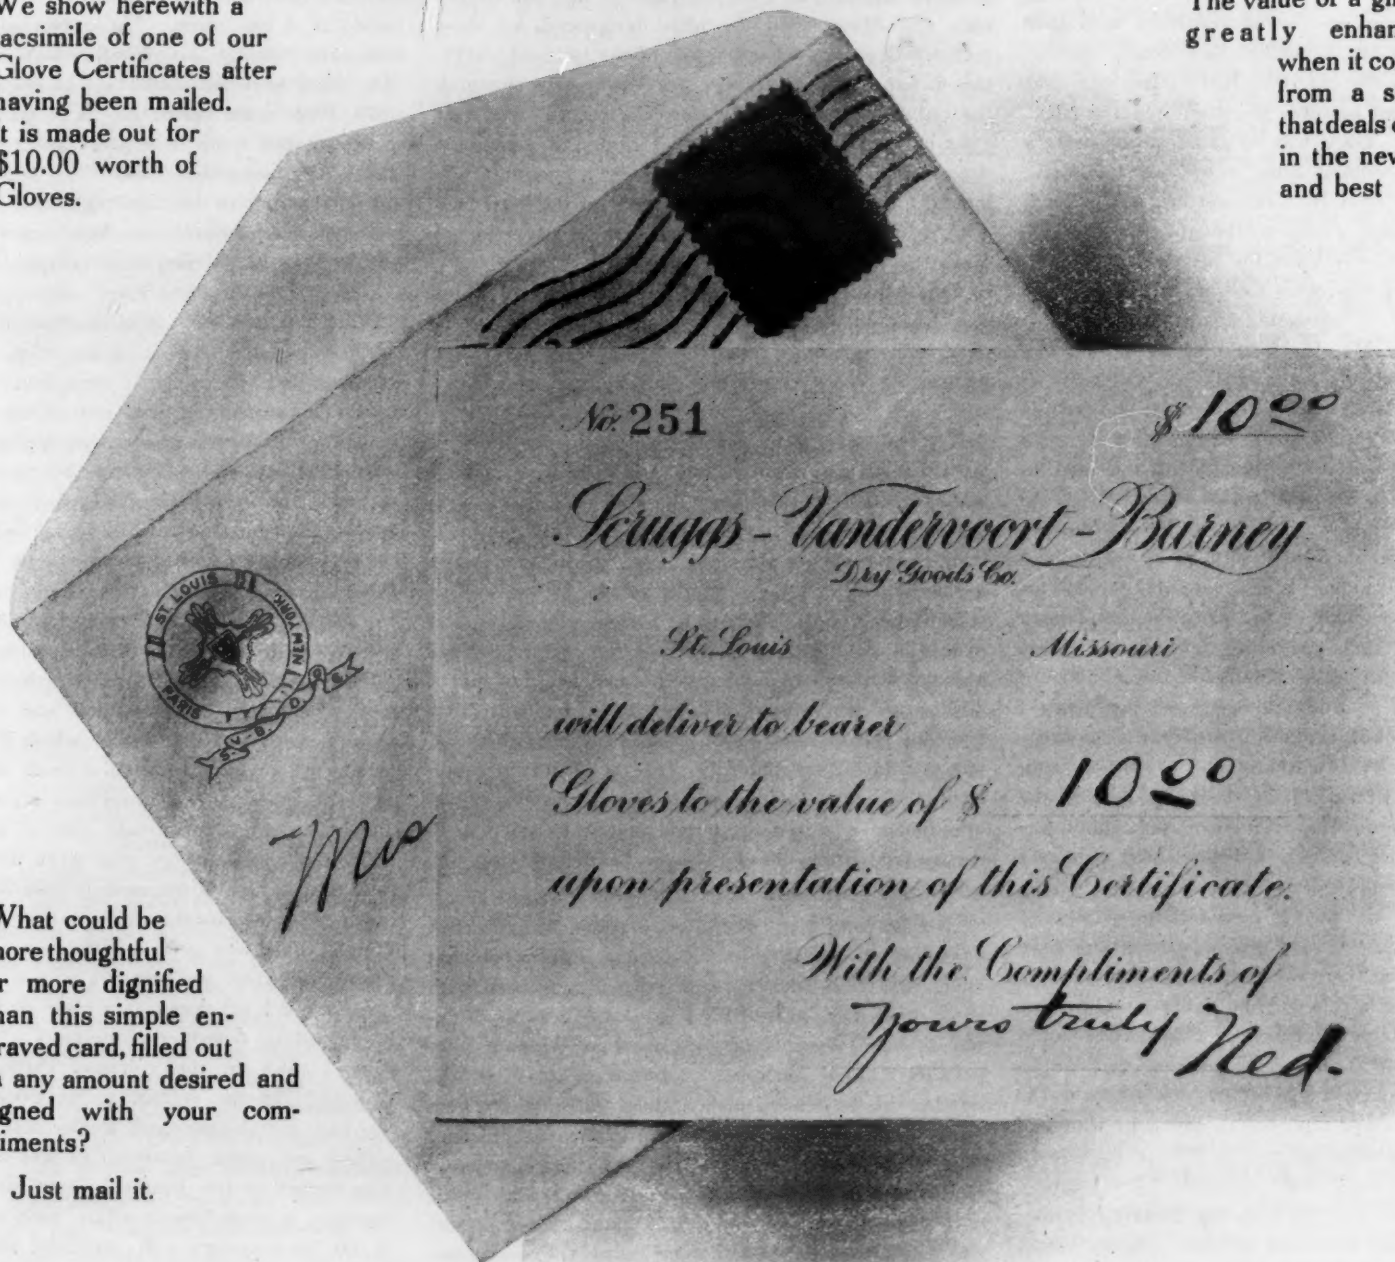 We show herewith a
facsimile of one of our
Glove Certificates after
having been mailed.
it is made out for
$10.00 worth of
Gloves.
The value of a
greatly
when it
from a
that deals
in the
and best
No. 251
$ 10 00
Scruggs - Vandervoort - Barney
Dry Goods Co.
St. Louis Missouri
will deliver to bearer
Gloves to the value of $ 10 00
upon presentation of this Certificate.
With the Compliments of
Yours truly Ned.
ST. LOUIS
NEW YORK
PARIS
S. V. B. D. G.
Mis
What could be
more thoughtful
r more dignified
han this simple en-
raved card, filled out
any amount desired and
igned with your com-
iments?
Just mail it.